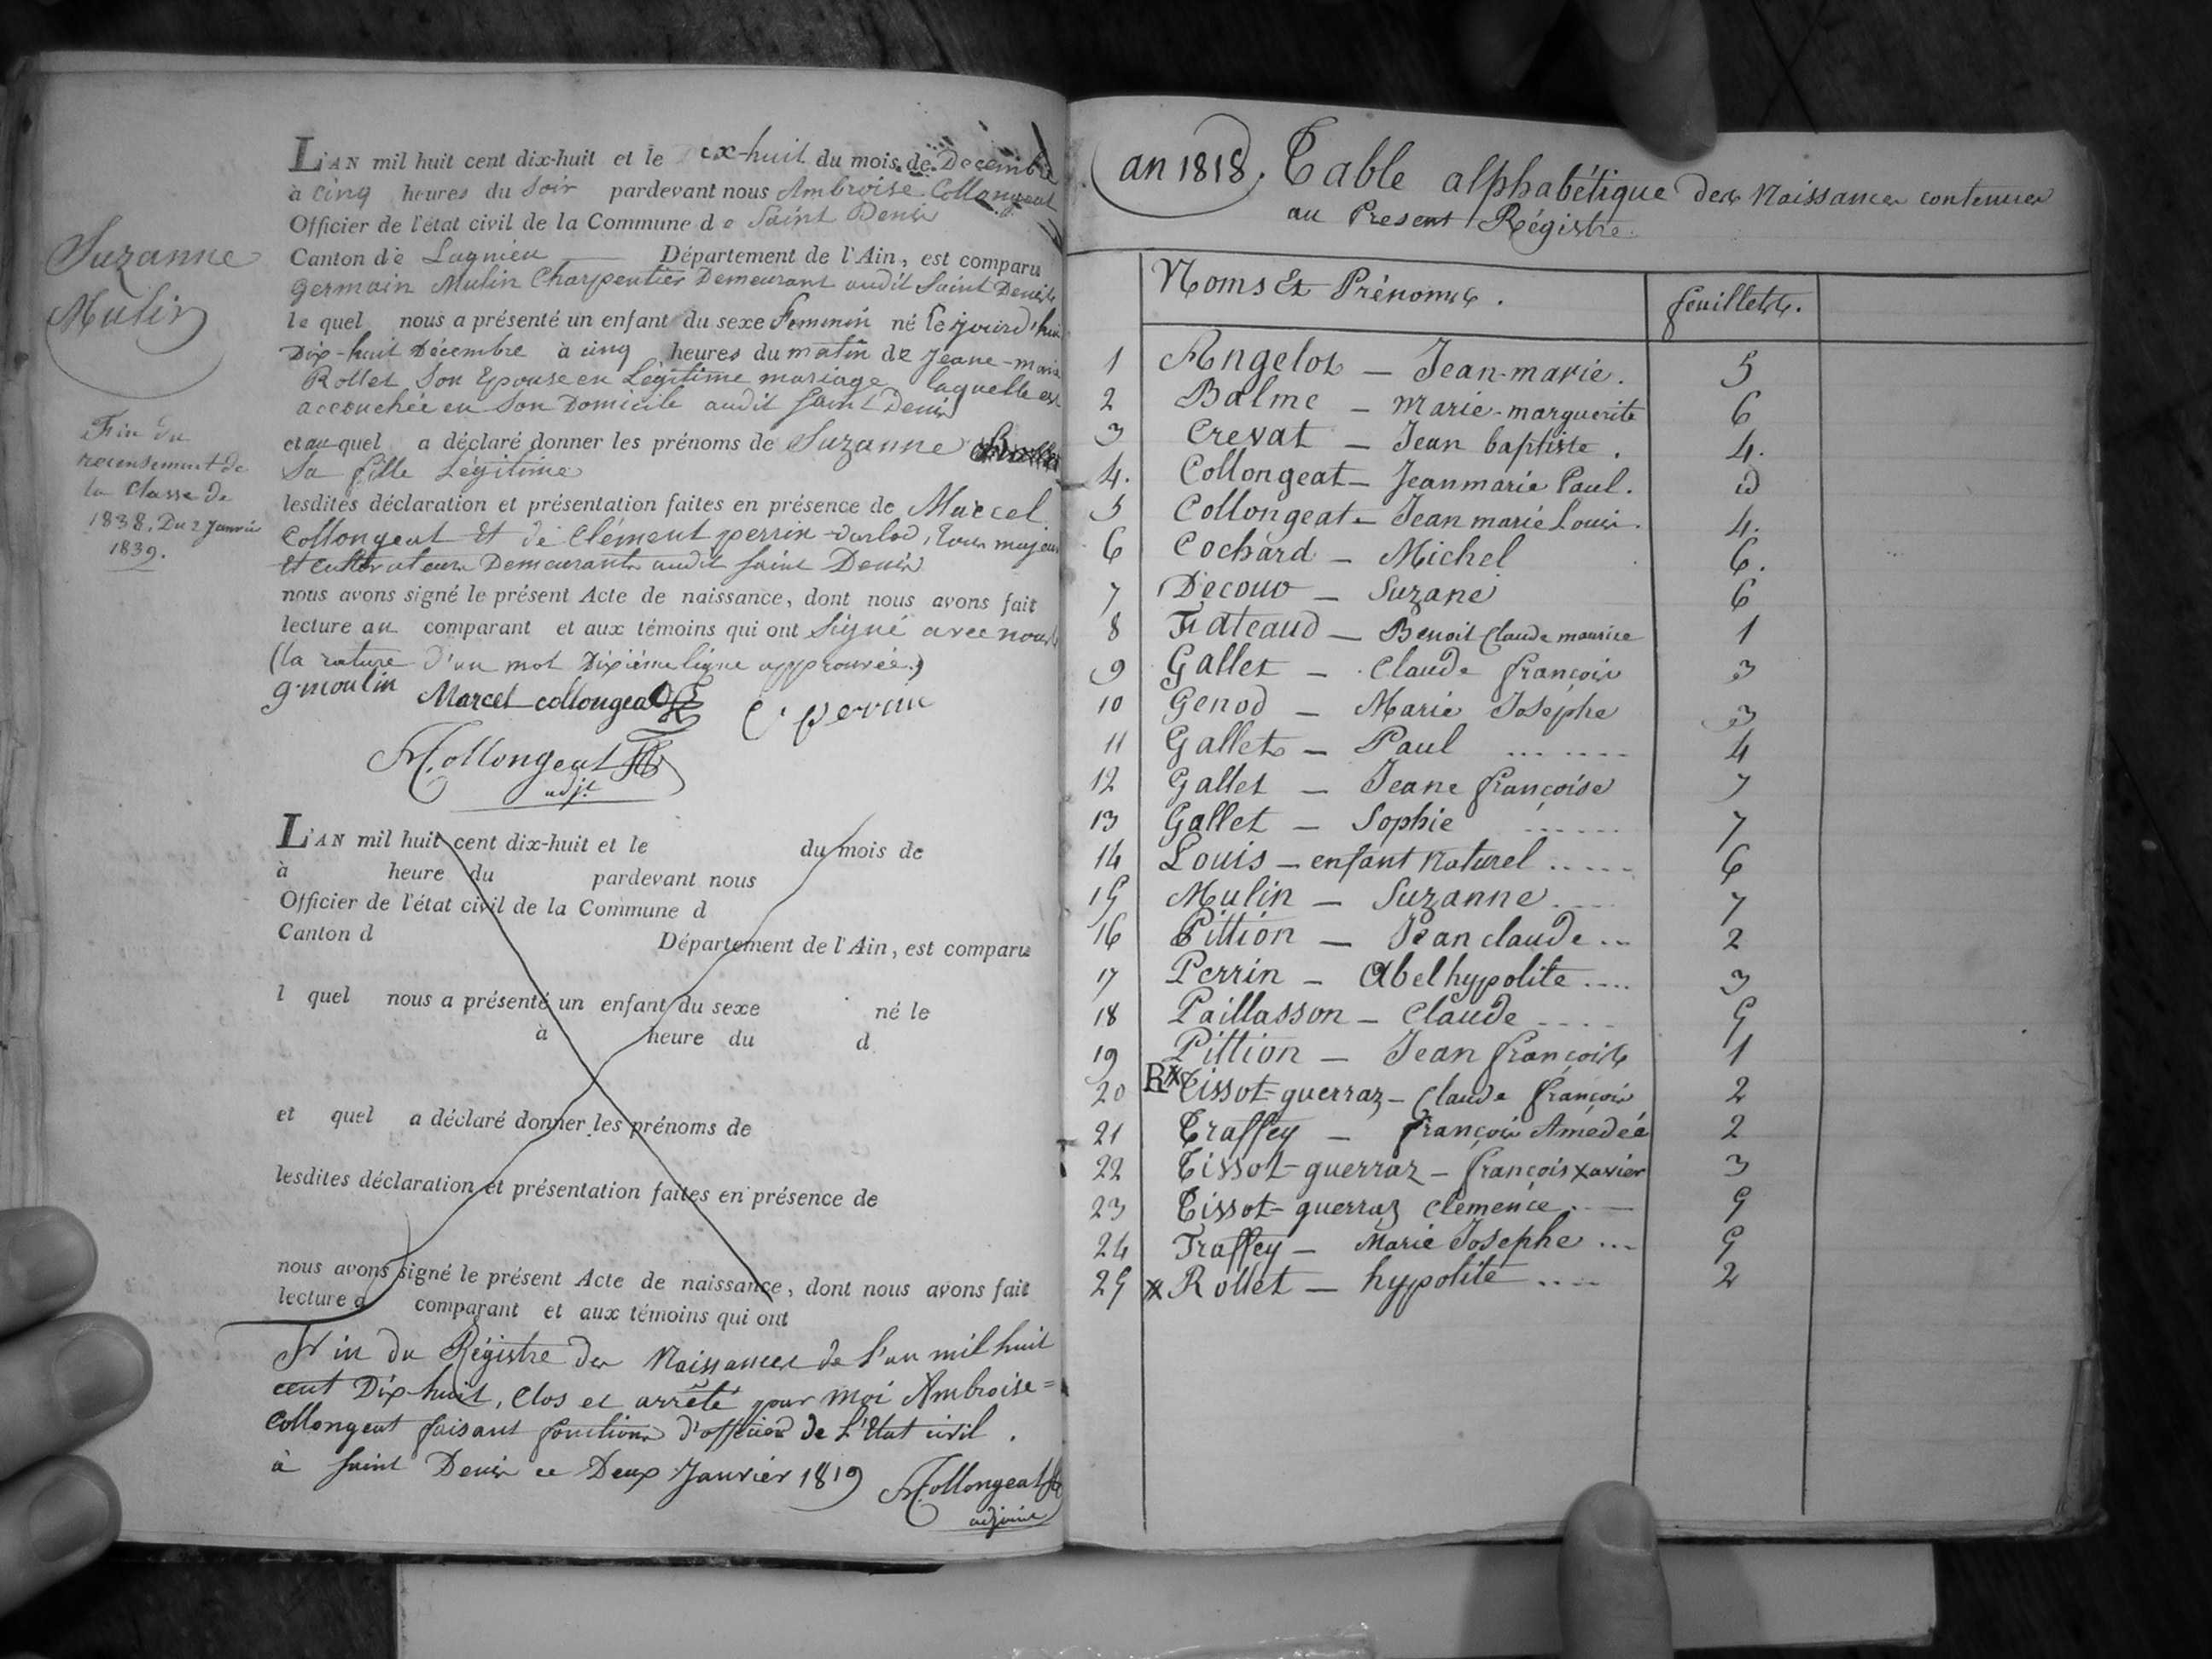 L'AN mil huit cent dix-huit et le dix-huit du mois de Decembre
à cinq heures du soir pardevant nous Ambroise Collongeat
Officier de l'état civil de la Commune de Saint Denis
Canton de Lagnieu Département de l'Ain, est comparu
germain Mulin Charpentier Demeurant audit Saint Denis
le quel nous a présenté un enfant du sexe Feminin né Cejourd'hui
Dix-huit Décembre à cinq heures du matin de Jeane-marie
Rollet Son Epouse en Légitime mariage laquelle est
accouchée en Son Domicile audit Saint Denis
et au quel a déclaré donner les prénoms de Suzanne
Sa fille Légitime
lesdites déclaration et présentation faites en présence de Marcel
Collongeat Et de Clément perrin-darlod, tous majeurs
et cultivateurs Demeurants audit Saint Denis
nous avons signé le présent Acte de naissance, dont nous avons fait
lecture au comparant et aux témoins qui ont Signé avec nous
(la rature d'un mot Dixième ligne approuvée.)
g. moulin Marcel collongeat C. perrin
A. Collongeat
adjt.
Suzanne
Mulin
Fin du
recensement de
la Classe de
1838. Du 2 Janvier
1839.
L'AN mil huit cent dix-huit et le du mois de
à heure du pardevant nous
Officier de l'état civil de la Commune d
Canton d Département de l'Ain, est comparu
l quel nous a présenté un enfant du sexe né le
à heure du d
et quel a déclaré donner les prénoms de
lesdites déclaration et présentation faites en présence de
nous avons signé le présent Acte de naissance, dont nous avons fait
lecture a comparant et aux témoins qui ont
Fin du Régistre des Naissances de l'an mil huit
cent Dix-huit, Clos et arrêté par moi Ambroise=
Collongeat faisant fonctions d'officier de L'Etat civil.
à Saint Denis ce Deux Janvier 1819 A. Collongeat
adjoint
an 1818. Table alphabétique des Naissances contenues
au Present Régistre.
Noms Et Prénoms. feuillets.
1 Angelot — Jean-marie. 5
2 Balme — Marie-marguerite 6
3 Crevat — Jean baptiste. 4.
4. Collongeat — Jeanmarie Paul.
5 Collongeat — Jean marie Louis. 4.
6 Cochard — Michel 6.
7 Decouv — Suzane 6
8 Frateaud — Benoit Claude maurice 1
9 Gallet — Claude françois 3
10 Genod — Marie Josephe 3
11 Gallet — Paul ... .... 4
12 Gallet — Jeane françoise 7
13 Gallet — Sophie ...... 7
14 Louis — enfant Naturel ..... 6
15 Mulin — Suzanne .... 7
16 Pittion — Jean claude .. 2
17 Perrin — Abel hypolite .... 3
18 Paillasson — Claude .... 5
19 Pittion — Jean françois 1
20 Rx Tissot=guerraz — Claude françois 2
21 Traffey — françois Amédée 2
22 Tissot-guerraz — françois xavier 3
23 Tissot-guerraz clemence .. 5
24 Traffey — Marie Josephe ... 5
25 x Rollet — hypolite .... 2